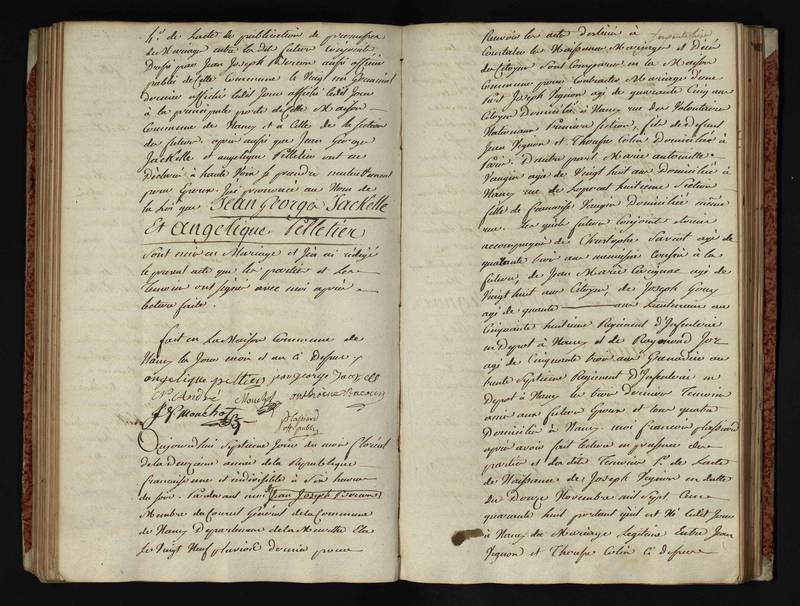 4° de Lacte de publication de promesses
de Mariage entre les dits futurs Conjoints
Dressé par Jean Joseph aussi officier
public de Cette Commune le Vingt six Germinal
dernier affiché ledit Jour affiché ledit Jour
à la principale porte de Cette Maison
Commune de Nancy et à Celle de la Section
du futur. après aussi que Jean George
Jackelle et angelique Pelletier ont eu
Déclaré à haute Voix se prendre mutuellement
pour Epoux. J'ai prononcé au Nom de
la Loi que Jean Georges Jackelle
Et angelique Pelletier
Sont unis en Mariage et J'en ai rédigé
le present acte que les parties et les
Temoins ont signé avec moi après
lecture faite.
fait en La Maison Commune de
Nancy les Jour mois et an ci Dessus
angelique peltier jean george
N. André Mouchot antoine
Mouchot
plassiard
off. public
Aujourd'hui Septieme Jour du mois floréal
de la Deuxieme année de la Republique
francaise une et indivisible à Six heures
du soir. Pardevant moi Jean Joseph
Membre du Conseil Général de la Commune
de Nancy Departement de la Meurthe Elu
Le Vingt Neuf pluviose dernier pour
Recevoir les actes destinés à
Constater les Naissances Mariages et Décès
des Citoyens Sont Comparus en la Maison
Commune pour Contracter Mariage d'une
part Joseph Vignon agé de quarante Cinq ans
Citoyen Domicilié à Nancy rue des Volontaires
Nationaux Premiere Section, fils de Defunt
Jean Vignon et Therese Colin Domiciliée à
Paris. D'autre part Marie antoinette
Vaugin agée de Vingt huit ans Domiciliée à
Nancy rue de huitieme Section
fille de francois Vaugin Domicilié même
rue. Les quels futurs Conjoints etoient
accompagnés de Christophe agé de
quarante trois ans menuisier Cousin à la
future, de Jean Marie agé de
Vingt huit ans Citoyen, de Joseph
agé de quarante ans Lieutenant au
Cinquante huitieme Regiment d'Infanterie
en Depot à Nancy et de Raymond
agé de Cinquante trois ans Grenadier au
trente Septieme Regiment d'Infanterie en
Depot à Nancy les trois derniers Temoins
amis aux futurs Epoux et tous quatre
Domiciliés à Nancy moi francois plassiard
après avoir fait lecture en presence des
parties et des dits Temoins 1° de Lacte
de Naissance de Joseph Vignon en datte
du Douze Novembre mil Sept Cent
quarante huit portant qu'il est Né ledit Jour
à Nancy du Mariage Legitime Entre Jean
Vignon et Therese Colin Ci dessus